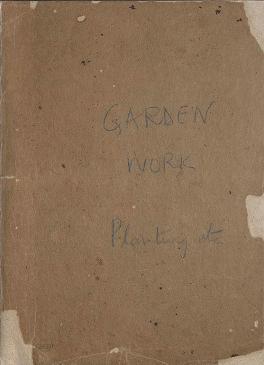 GARDEN
WORK
Planting etc